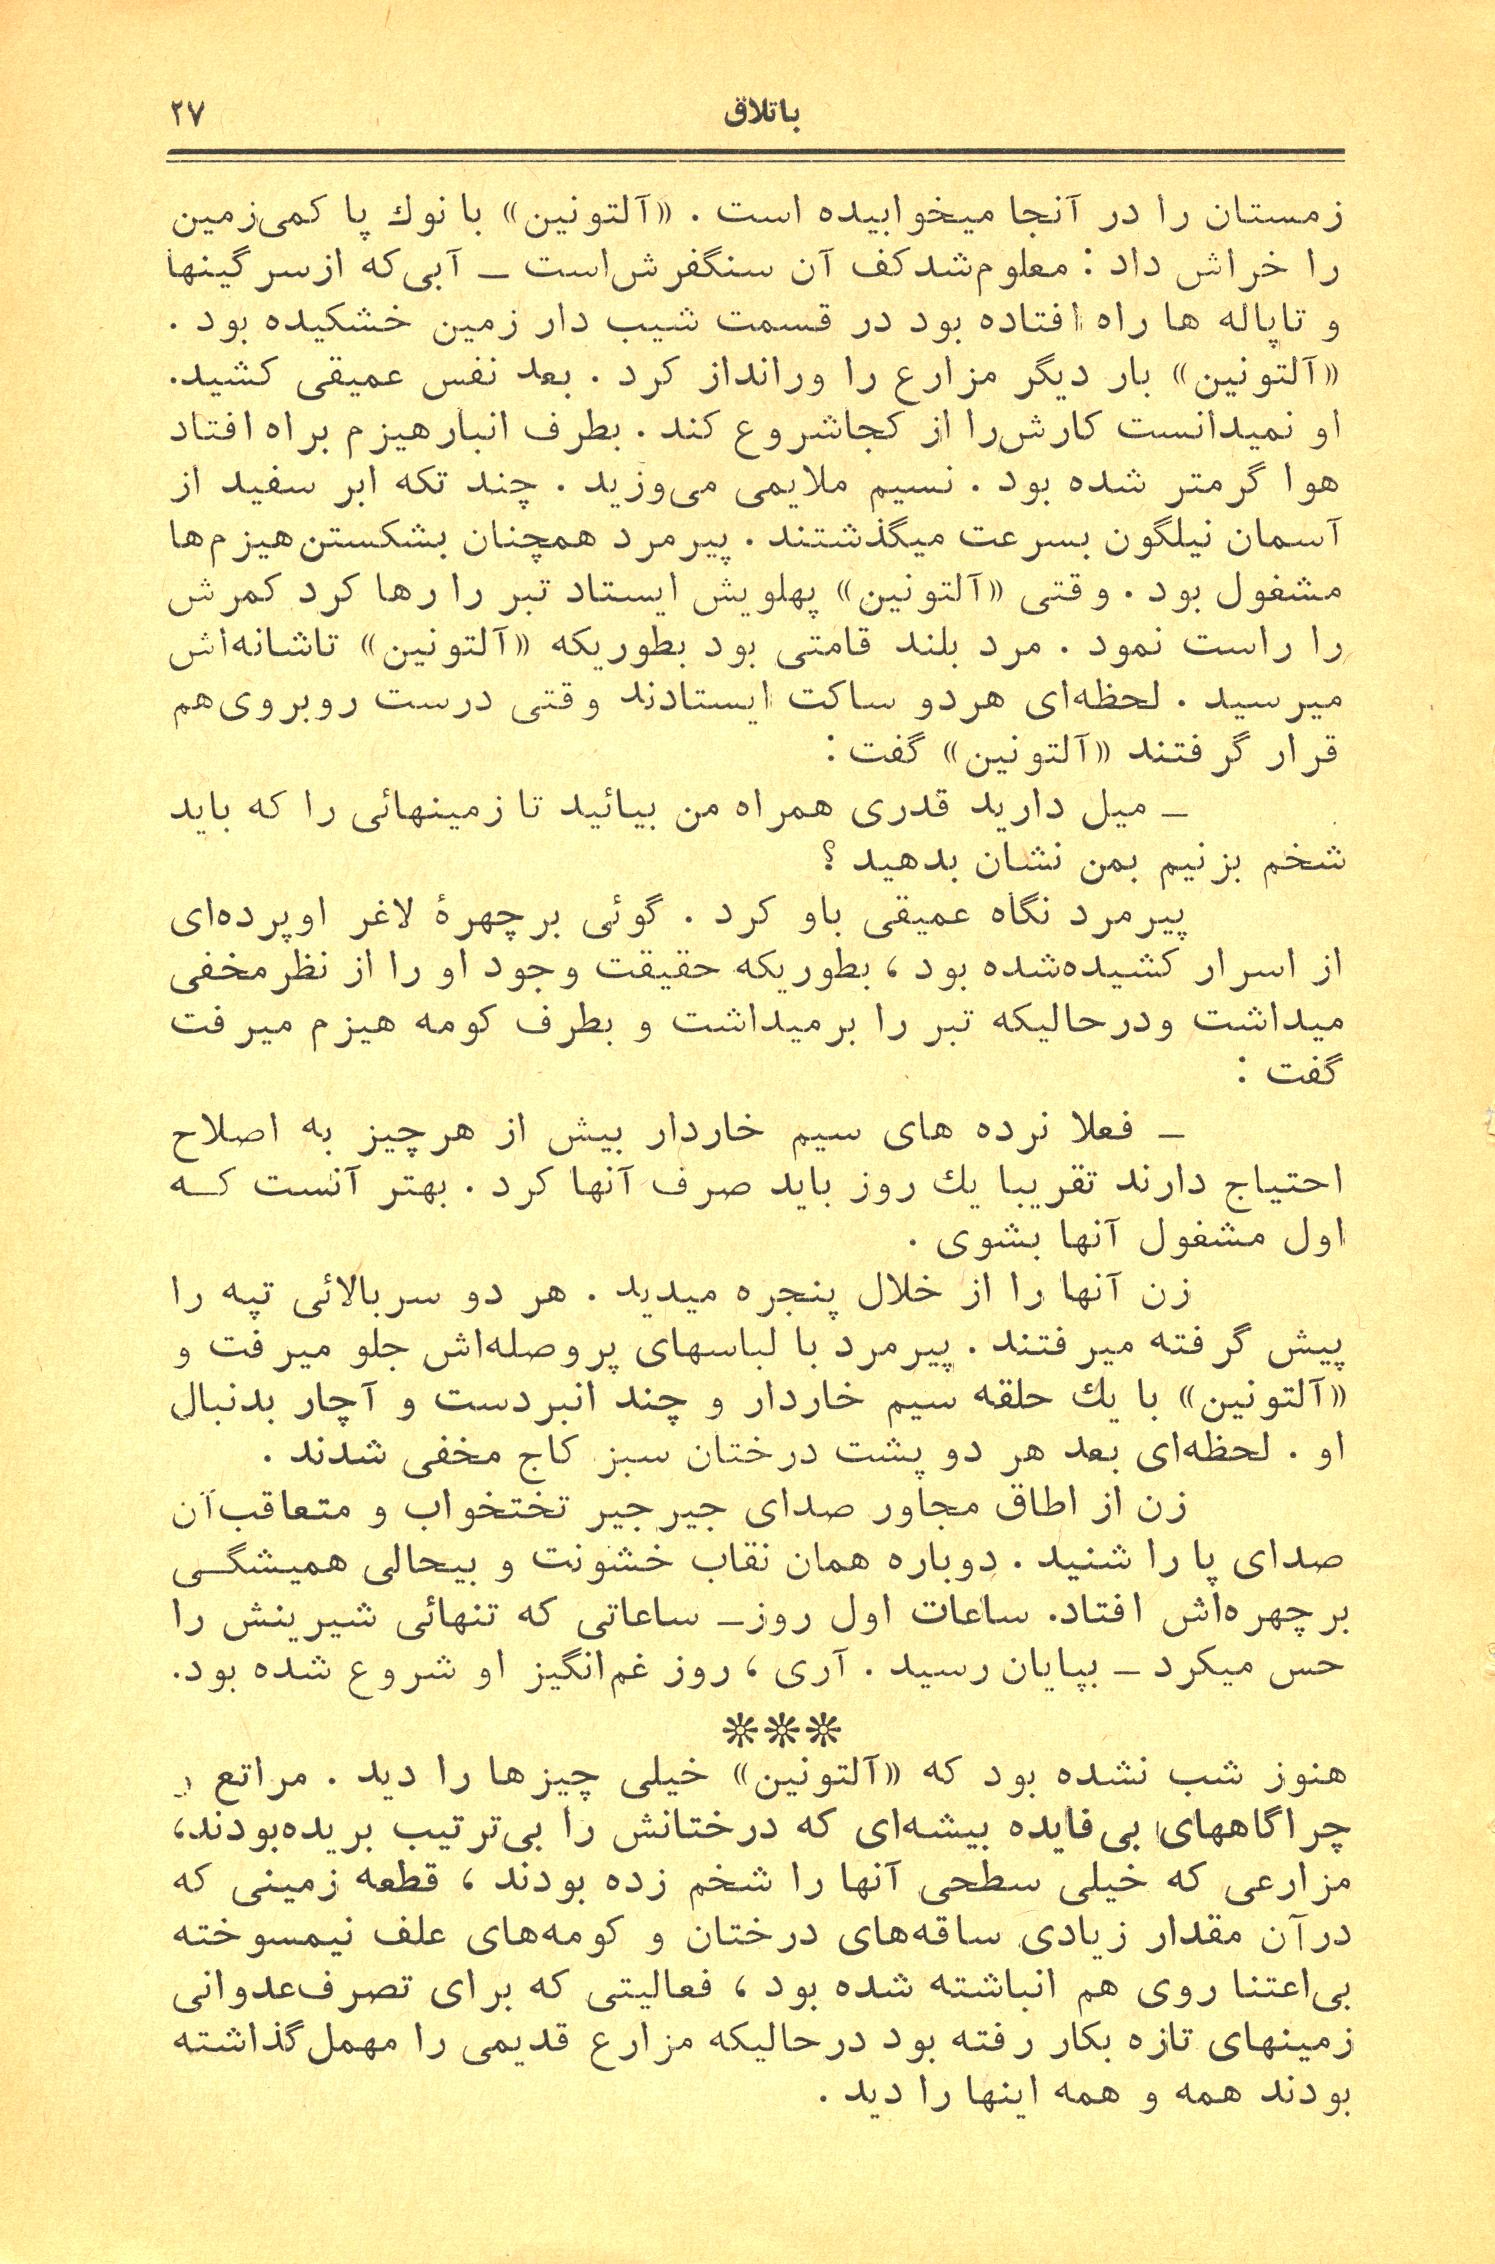 باتلاق ۲۷
زمستان را در آنجا میخوابیده است . «آلتونین» با نوك پا کمی‌زمین
را خراش داد : معلوم‌شد کف آن سنگفرش‌است ـ آبی‌که ازسرگینها
و تاپاله ها راه افتاده بود در قسمت شیب دار زمین خشکیده بود .
«آلتونین» بار دیگر مزارع را ورانداز کرد . بعد نفس عمیقی کشید.
او نمیدانست کارش‌را از کجاشروع کند . بطرف انبارهیزم براه افتاد
هوا گرمتر شده بود . نسیم ملایمی می‌وزید . چند تکه ابر سفید از
آسمان نیلگون بسرعت میگذشتند . پیرمرد همچنان بشکستن هیزم‌ها
مشغول بود . وقتی «آلتونین» پهلویش ایستاد تبر را رها کرد کمرش
را راست نمود . مرد بلند قامتی بود بطوریکه «آلتونین» تاشانه‌اش
میرسید . لحظه‌ای هردو ساکت ایستادند وقتی درست روبروی‌هم
قرار گرفتند «آلتونین» گفت :
ـ میل دارید قدری همراه من بیائید تا زمینهائی را که باید
شخم بزنیم بمن نشان بدهید ؟
پیرمرد نگاه عمیقی باو کرد . گوئی برچهرهٔ لاغر اوپرده‌ای
از اسرار کشیده‌شده بود ، بطوریکه حقیقت وجود او را از نظرمخفی
میداشت ودرحالیکه تبر را برمیداشت و بطرف کومه هیزم میرفت
گفت :
ـ فعلا نرده های سیم خاردار بیش از هرچیز به اصلاح
احتیاج دارند تقریبا یك روز باید صرف آنها کرد . بهتر آنست کـه
اول مشغول آنها بشوی .
زن آنها را از خلال پنجره میدید . هر دو سربالائی تپه را
پیش گرفته میرفتند . پیرمرد با لباسهای پروصله‌اش جلو میرفت و
«آلتونین» با یك حلقه سیم خاردار و چند انبردست و آچار بدنبال
او . لحظه‌ای بعد هر دو پشت درختان سبز کاج مخفی شدند .
زن از اطاق مجاور صدای جیرجیر تختخواب و متعاقب‌آن
صدای پا را شنید . دوباره همان نقاب خشونت و بیحالی همیشگـی
برچهره‌اش افتاد. ساعات اول روزـ ساعاتی که تنهائی شیرینش را
حس میکرد ـ بپایان رسید . آری ، روز غم‌انگیز او شروع شده بود.
❊❊❊
هنوز شب نشده بود که «آلتونین» خیلی چیزها را دید . مراتع و
چراگاههای بی‌فایده بیشه‌ای که درختانش را بی‌ترتیب بریده‌بودند،
مزارعی که خیلی سطحی آنها را شخم زده بودند ، قطعه زمینی که
درآن مقدار زیادی ساقه‌های درختان و کومه‌های علف نیمسوخته
بی‌اعتنا روی هم انباشته شده بود ، فعالیتی که برای تصرف‌عدوانی
زمینهای تازه بکار رفته بود درحالیکه مزارع قدیمی را مهمل‌گذاشته
بودند همه و همه اینها را دید .